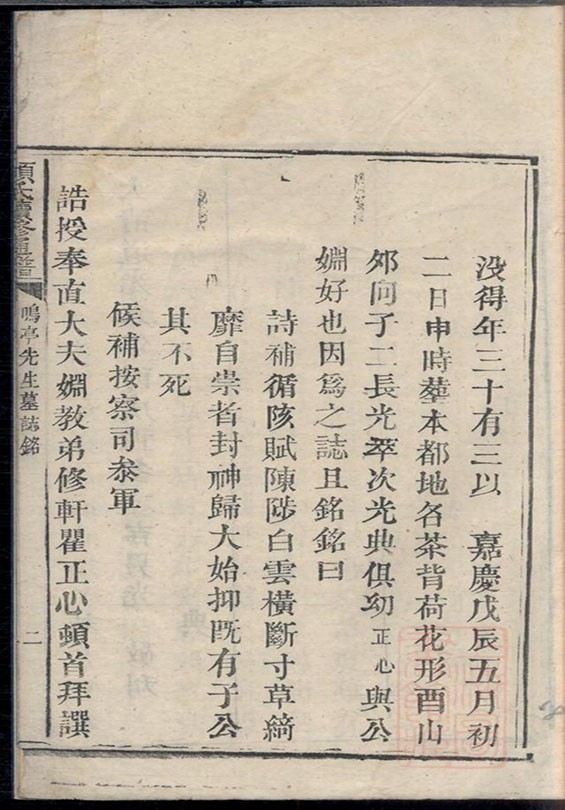 没得年三十有三以　嘉慶戊辰五月初
二日申時塟本都地名茶背荷花形酉山
夘向子二長光萃次光典俱㓜正心與公
婣好也因爲之誌且銘銘曰
詩補循陔賦陳陟白雲橫斷寸草綺
靡自崇者封神歸大始抑旣有子公
其不死
候補按察司叅軍
誥授奉直大夫婣教弟修軒瞿正心頓首拜譔
鳴亭先生墓誌銘
二